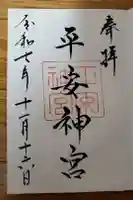 奉拝
平安神宮
令和七年十一月十六日